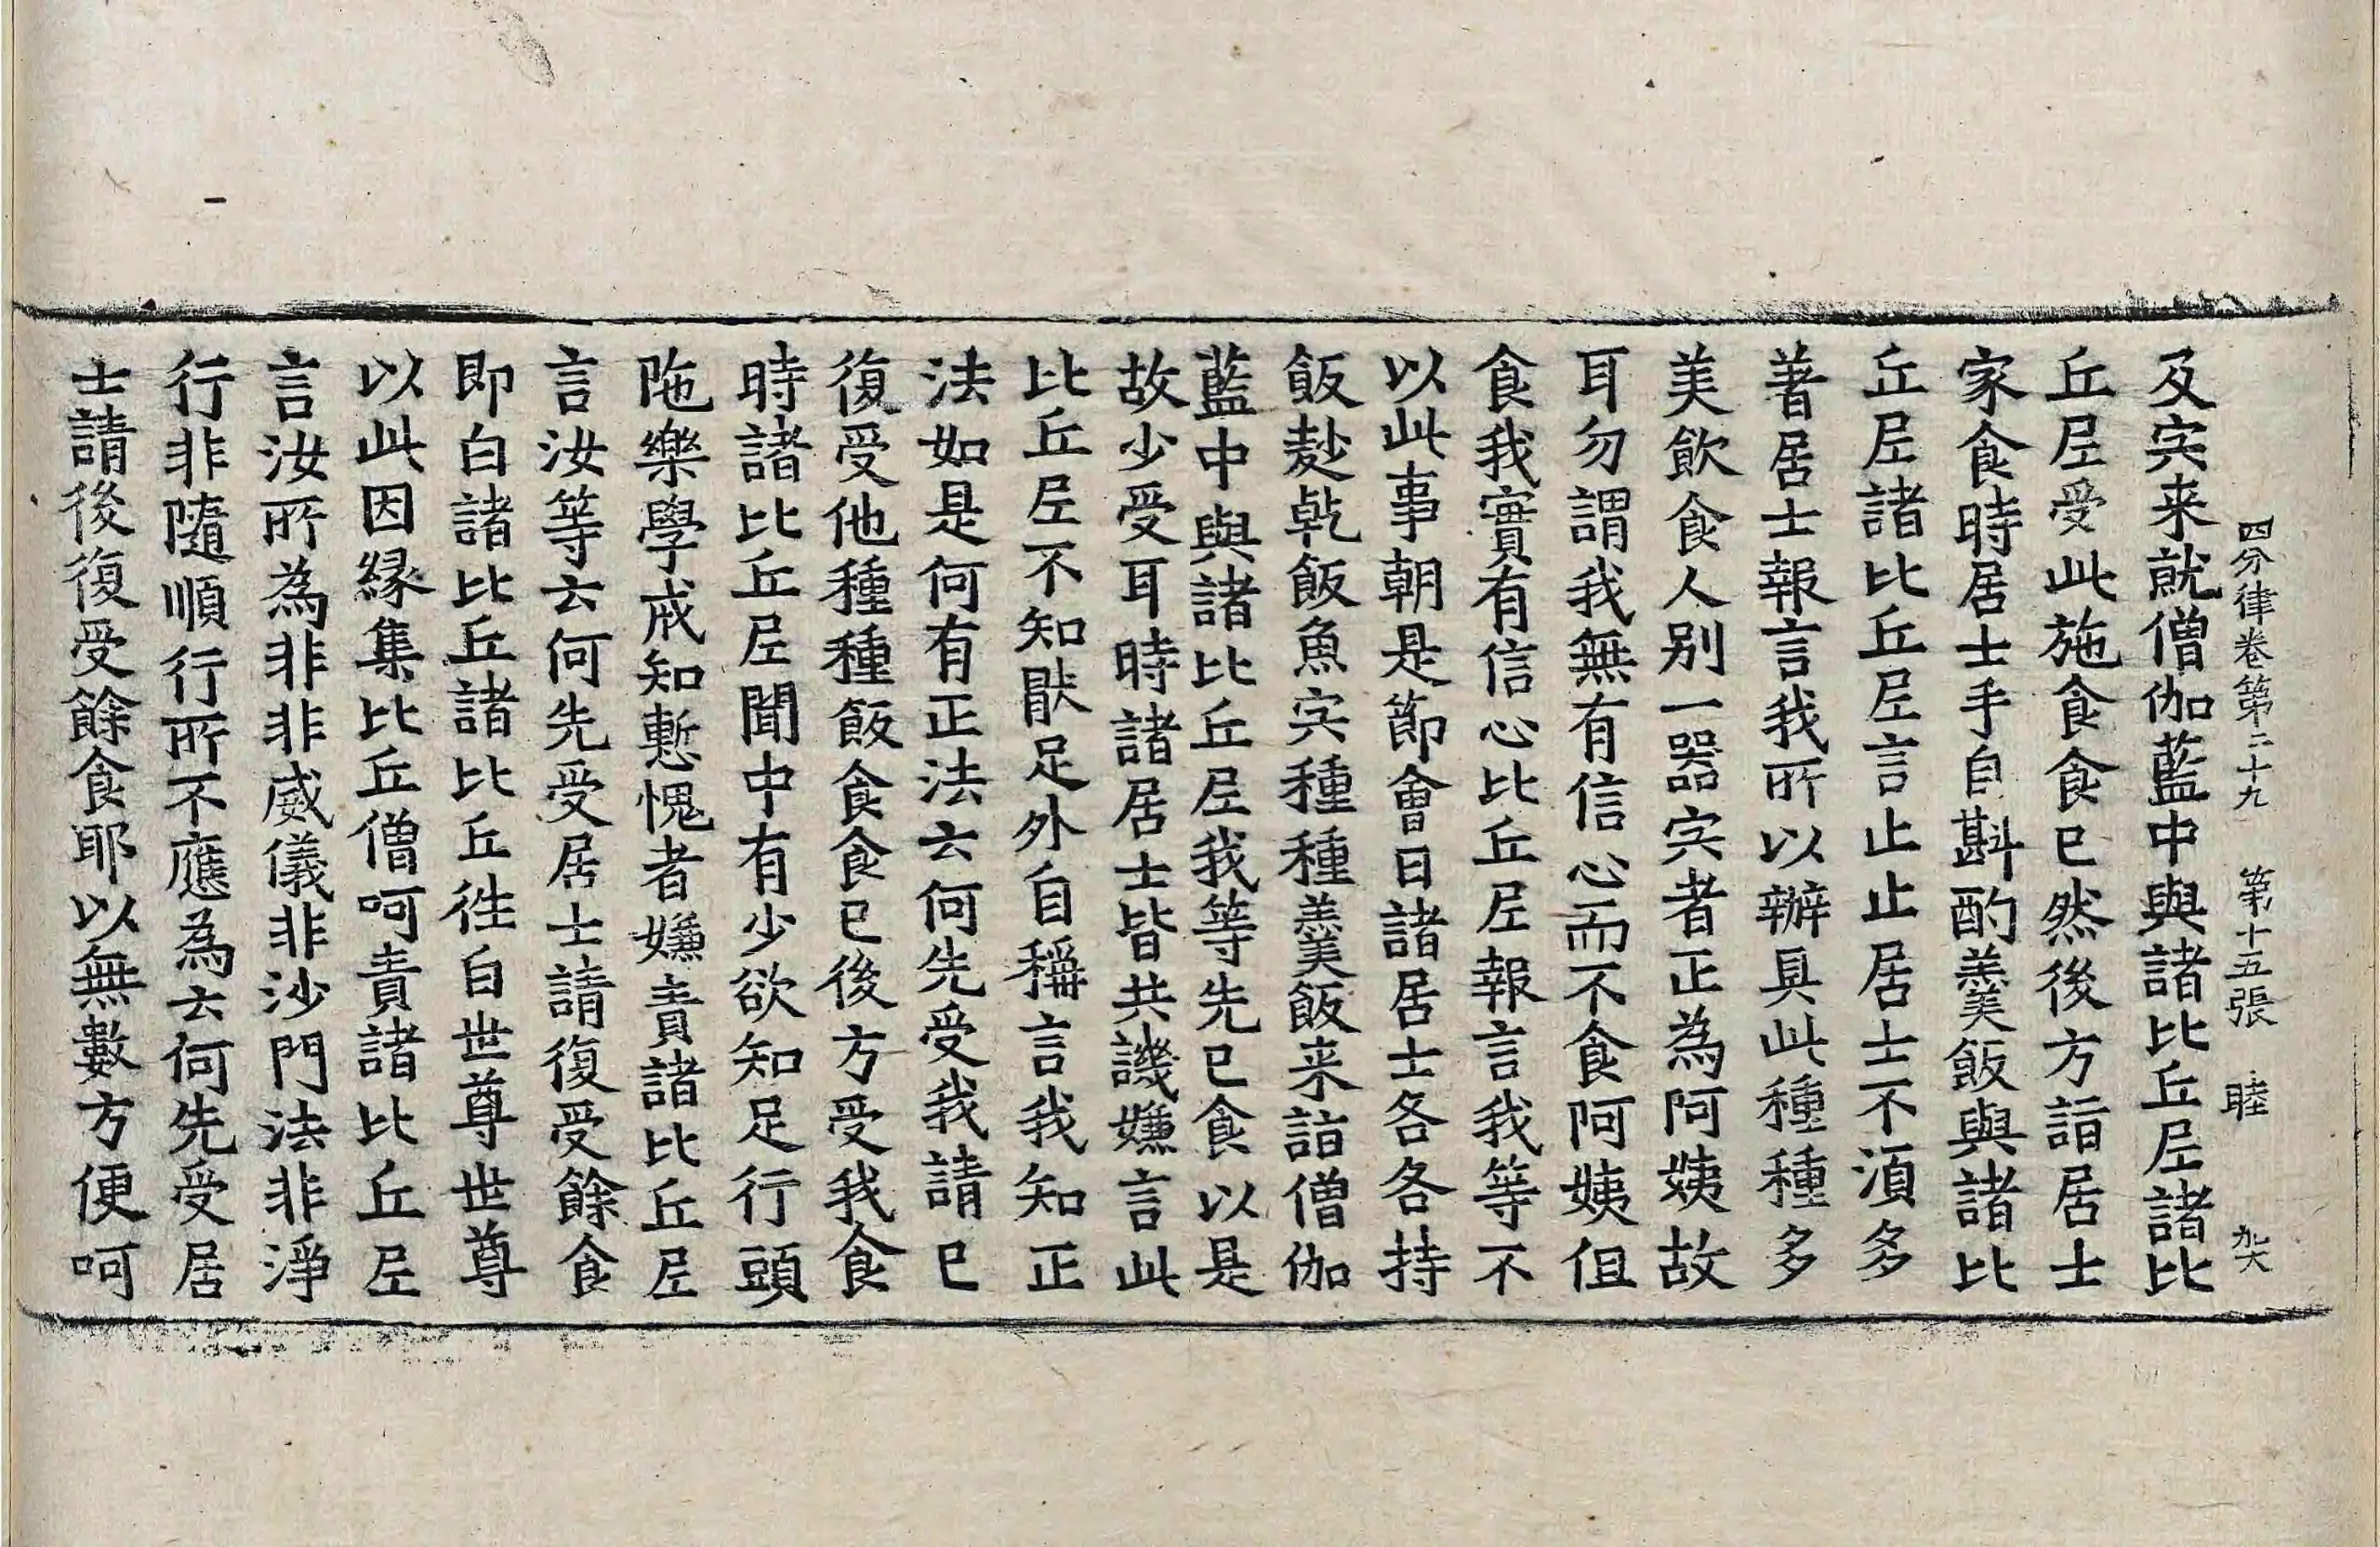 四分律卷第二十九 第十五張 睦
及宍来就僧伽藍中與諸比丘尼諸比
丘尼受此施食食已然後方詣居士
家食時居士手自斟酌羹飯與諸比
丘尼諸比丘尼言止止居士不湏多
著居士報言我所以辦具此種種多
美飲食人別一器宍者正為阿姨故
耳勿謂我無有信心而不食阿姨但
食我實有信心比丘尼報言我等不
以此事朝是節會日諸居士各各持
飯麨乹飯魚宍種種羹飯来詣僧伽
藍中與諸比丘尼我等先已食以是
故少受耳時諸居士皆共譏嫌言此
比丘尼不知猒足外自稱言我知正
法如是何有正法云何先受我請已
復受他種種飯食食已後方受我食
時諸比丘尼聞中有少欲知足行頭
陁樂學戒知慙愧者嫌責諸比丘尼
言汝等云何先受居士請復受餘食
即白諸比丘諸比丘徃白世尊世尊
以此因縁集比丘僧呵責諸比丘尼
言汝所為非非威儀非沙門法非淨
行非隨順行所不應為云何先受居
士請後復受餘食耶以無數方便呵